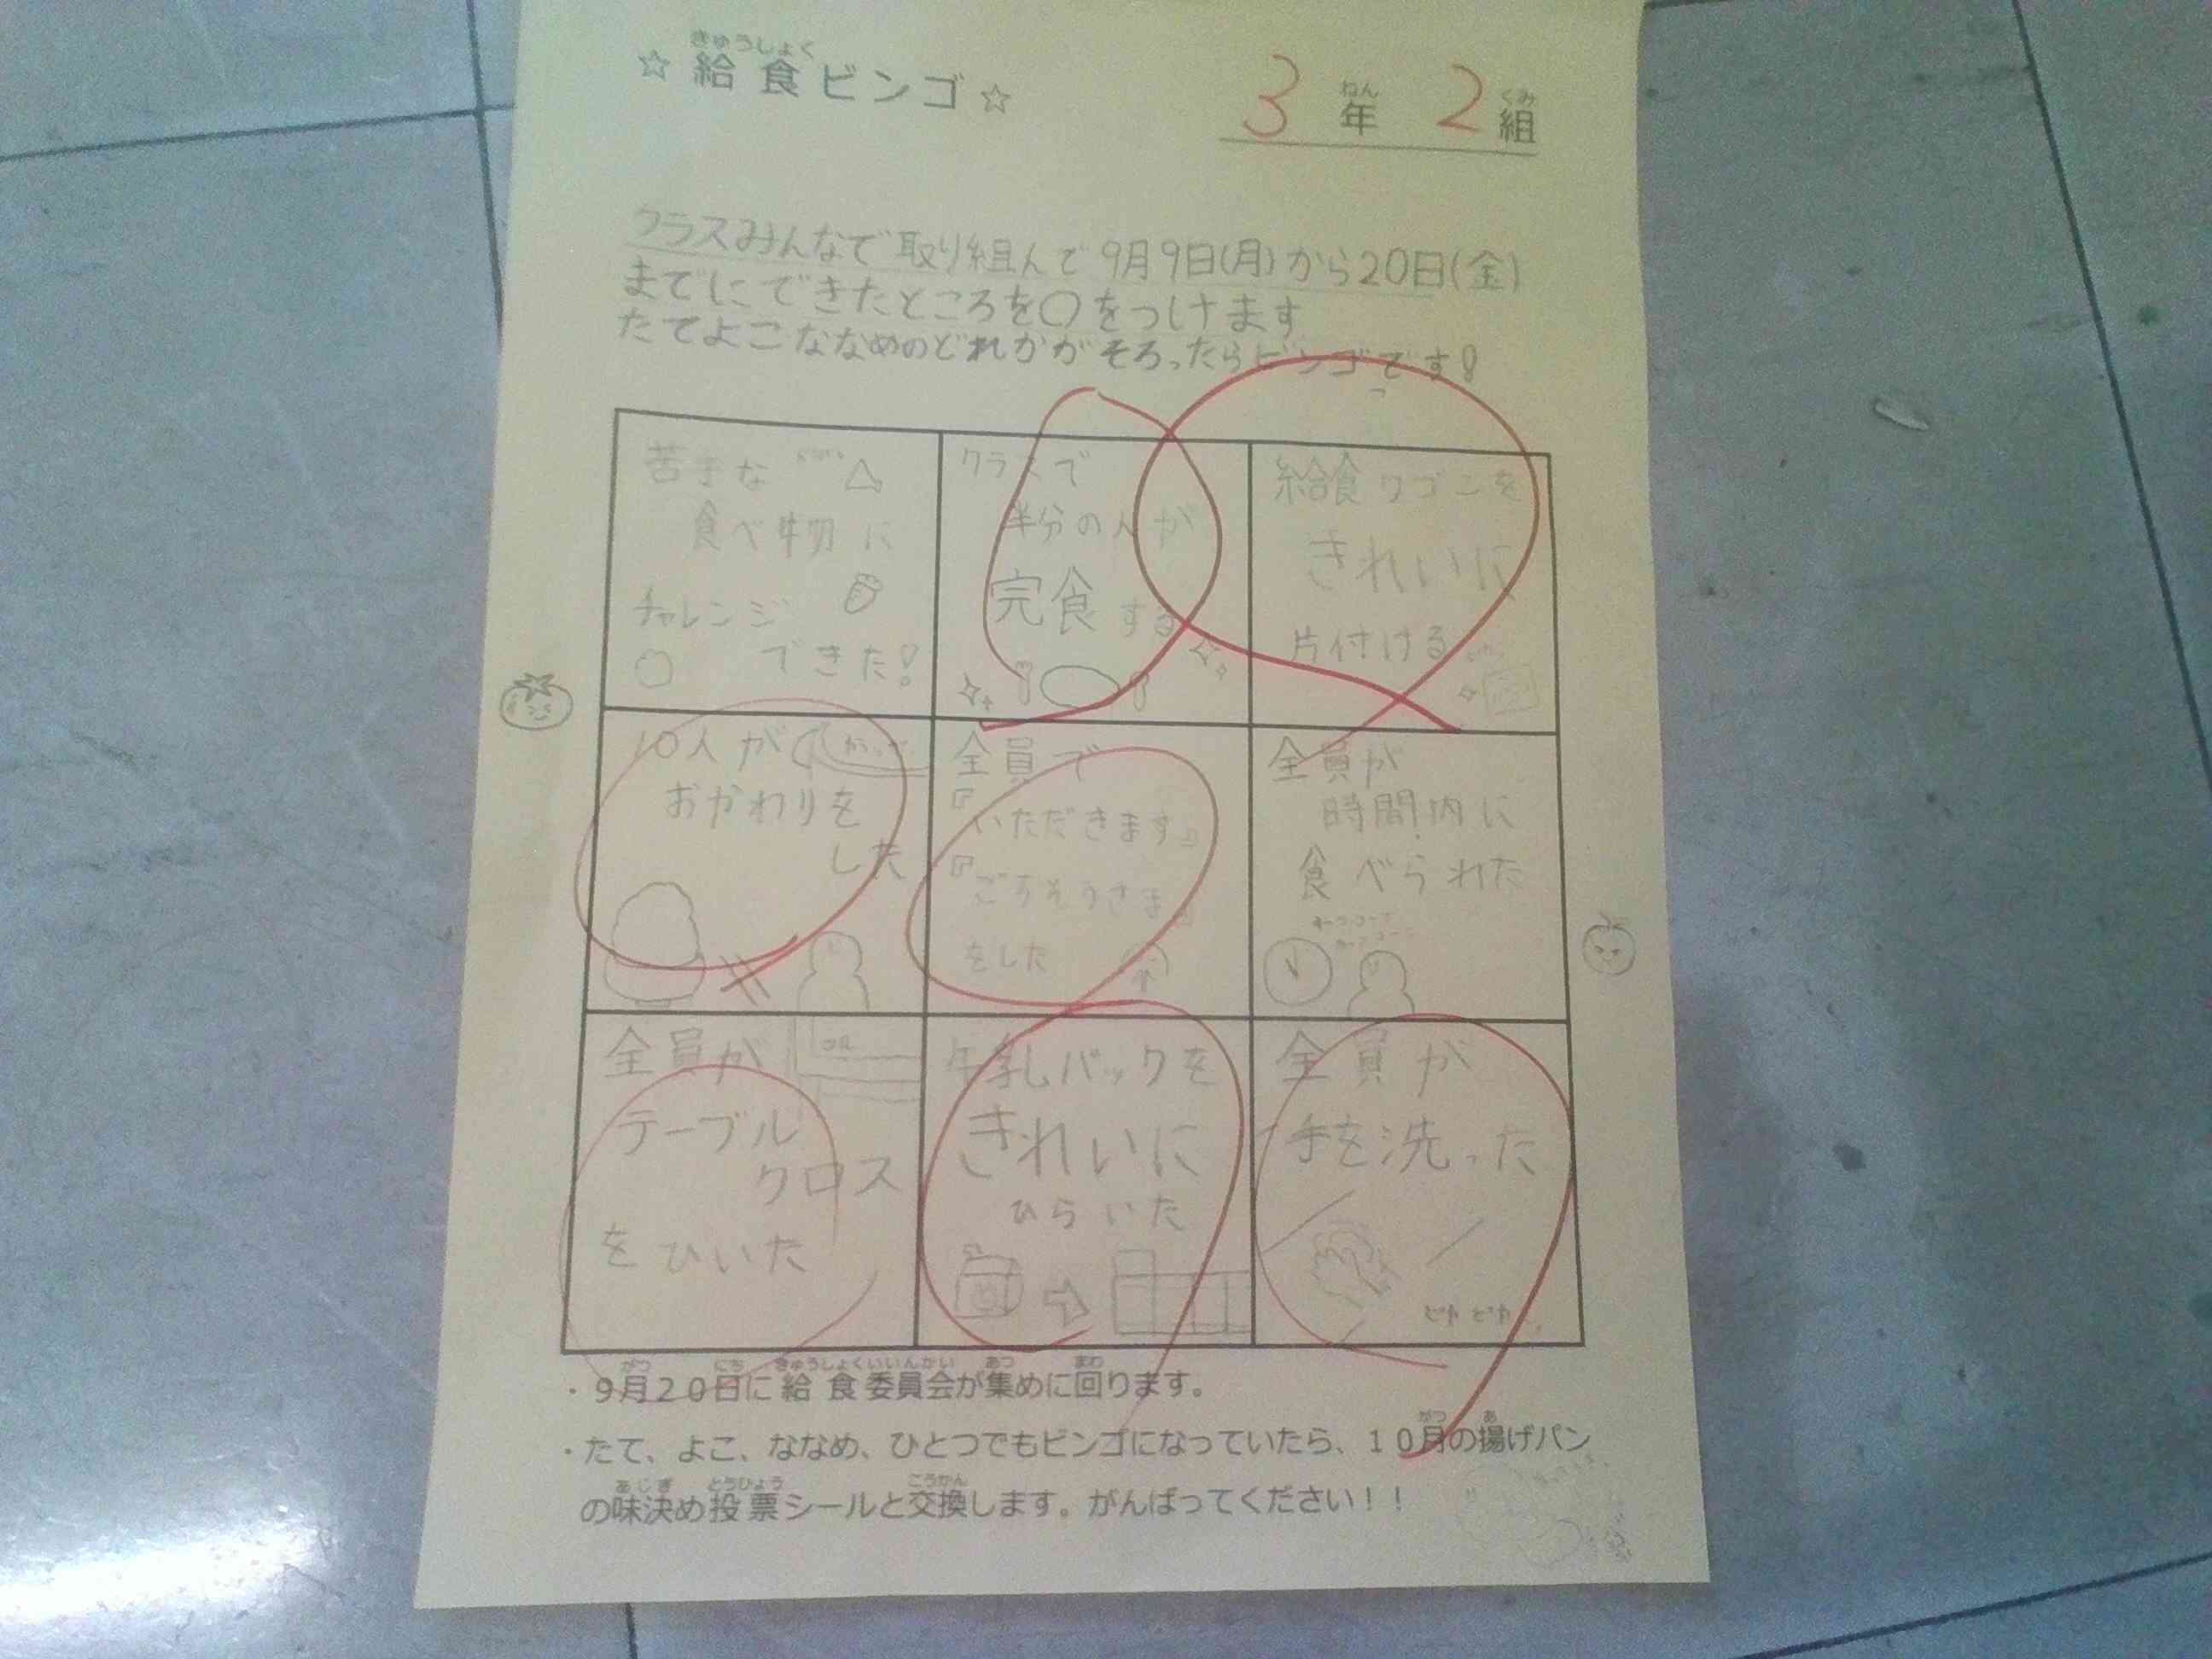 ☆給食ビンゴ☆
きゅうしょく
3年2組
ねん くみ
クラスみんなで取り組んで9月9日(月)から20日(金)
までにできたところを○をつけます
たてよこななめのどれかがそろったらビンゴです!
苦手な
食べ物に
チャレンジ
できた!
クラスで
半分の人が
完食する
給食ワゴンを
きれいに
片付ける
10人が
おかわりを
した
全員で
『いただきます』
『ごちそうさま』
をした
全員が
時間内に
食べられた
全員が
テーブル
クロス
をひいた
牛乳パックを
きれいに
ひらいた
全員が
手を洗った
ピカピカ
がつ にち きゅうしょくいいんかい あつ まわ
・9月20日に給食委員会が集めに回ります。
がつ あ
・たて、よこ、ななめ、ひとつでもビンゴになっていたら、10月の揚げパン
あじぎ とうひょう こうかん
の味決め投票シールと交換します。がんばってください!!